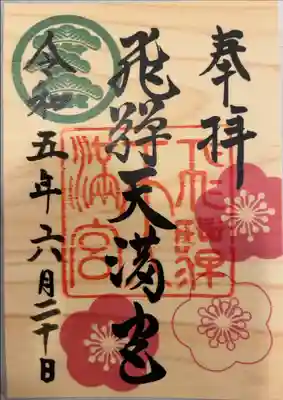 奉拝
飛騨天満宮
令和五年六月二十日
飛騨天満宮